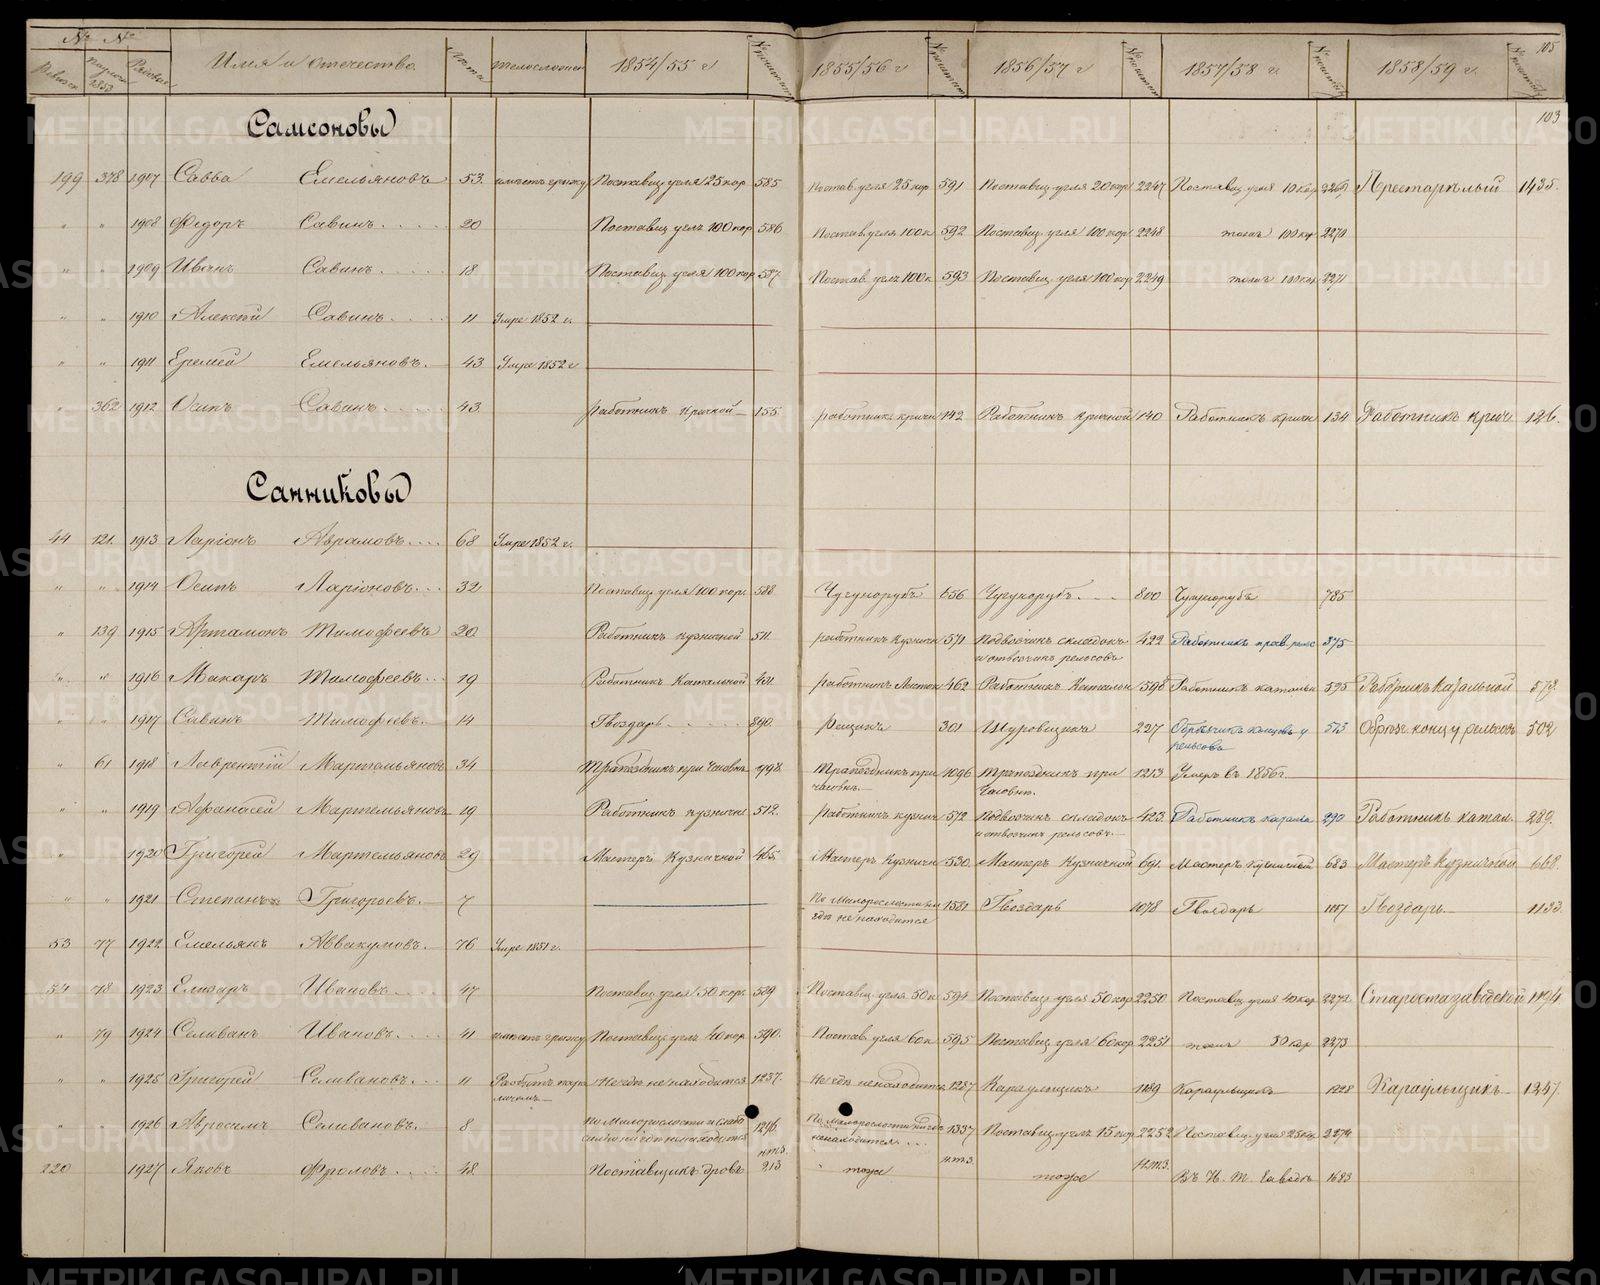 № №
Имя и отечество
Лѣта
1854/55 г
1855/56 г
1856/57 г
1857/58 г.
1858/59 г.
105
103
Самсоновы
199 378 1907 Савва Емельяновъ 53. имѣетъ грыжу Поставщ. угля 25 кор. 585 Постав. угля 25 кор. 591 Поставщ. угля 20 кор 2247 Поставщ. угля 10 кор Престарѣлый 1435.
" " 1908 Федоръ Савинъ 20 Поставщ. угля 100 кор 586 Постав. угля 100 к 592 Поставщ. угля 100 кор. 2248 тоже 100 кор 2270
" " 1909 Иванъ Савинъ 18 Поставщ. угля 100 кор 587. Постав. угля 100 к. 593 Поставщ. угля 100 кор 2249 тоже 100 кор 2271
" " 1910 Алексѣй Савинъ 11 Умре 1852 г.
" " 1911 Еремей Емельяновъ. 43 Умре 1852 г
" 362 1912 Осипъ Савинъ 43. работникъ кричной 155 работник. кричн 142 Работникъ кричной 140 Работникъ кричн 134 Работникъ крич. 126.
Санниковы
44 121 1913 Ларіонъ Аврамовъ 68 Умре 1852 г.
" " 1914 Осипъ Ларіоновъ 32 Поставщ. угля 100 кор. 588 Чугунорубъ 656 Чугунорубъ 800 Чугунорубъ 785
" 139 1915 Артамонъ Тимофеевъ 20 Работникъ кузничной 511 работникъ кузничн 571 Подвозчикъ складокъ 422 Работникъ 375
и отвозчикъ рельсовъ
" " 1916 Макаръ Тимофеевъ 19 Работникъ Катальной 451 работникъ Листок 462 Работникъ Катальн 598 Работникъ катальн 595 Работникъ Катальный 578.
" " 1917 Савинъ Тимофеевъ 14 Гвоздарь 890. рещикъ 301 Шуровщикъ 227 Обрѣзчикъ концовъ у 513 Обрѣзч. конц. у рельсовъ 502
рельсовъ
" 61 1918 Лаврентій Мартемьяновъ 34 Трапездникъ при Часовнѣ 1798. Трапездникъ при 1096 Трапездникъ при 1213 Умеръ въ 1856 г.
часовнѣ Часовнѣ.
" " 1919 Афанасей Мартемьяновъ 19 Работникъ кузничн 512. работникъ кузничн 572 Подвозчикъ складокъ 423. Работникъ катал 290 Работникъ катал. 289.
и отвозчикъ рельсовъ.
" 1920 Григорей Мартемьяновъ 29 Мастеръ Кузничной 465. Мастеръ Кузничн 530. Мастеръ Кузничной 691. Мастеръ кузничной 683 Мастеръ Кузничный 668.
" " 1921 Степанъ Григорьевъ. 7 По Малорослости ни 1521 Гвоздарь 1078 Гвоздарь 1107 Гвоздарь 1133.
гдѣ не находится
53 77 1922 Емельянъ Аввакумовъ. 76 Умре 1851 г.
54 78 1923 Елизаръ Ивановъ 47 Поставщ. угля 50 кор. 589 Поставщ. угля 50 к 594 Поставщ. угля 50 кор 2250 Поставщ. угля 40 кор 2272 Староста заводской 1194.
" 79 1924 Селиванъ Ивановъ. 41 имѣетъ грыжу Поставщ. угля 40 кор 590. Постав. угля 60 к 595 Поставщ. угля 60 кор 2251 тоже 80 кор 2273
" " 1925 Григорей Селивановъ. 11 Разбитъ пара Не гдѣ не находится 1237. Не гдѣ не находитс. 1287 Караульщикъ 1189 Караульщикъ 1228 Караульщикъ 1247.
личемъ
" " 1926 Авросимъ Селивановъ. 8 По Малорослости и слабо 1296. По Малорослости ни гдѣ 1337 Поставщ. угля 15 кор 2252 Поставщ. угля 25 кор 2274
не находится
220 1927 Яковъ Фроловъ 48. Поставщикъ дровъ 213 тоже тоже Въ Н. Т. Заводѣ 1683